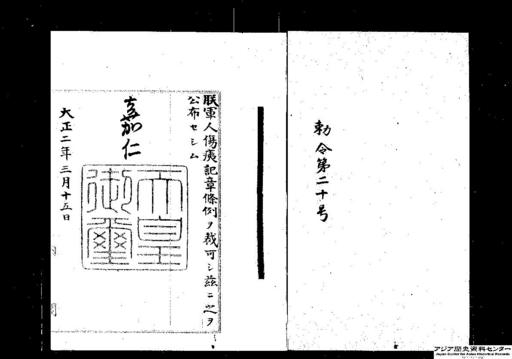 勅令第二十号
朕軍人傷痍記章條例ヲ裁可シ茲ニ之ヲ
公布セシム
嘉仁
天皇
御璽
大正二年三月十五日
アジア歴史資料センター
Japan Center for Asian Historical Records